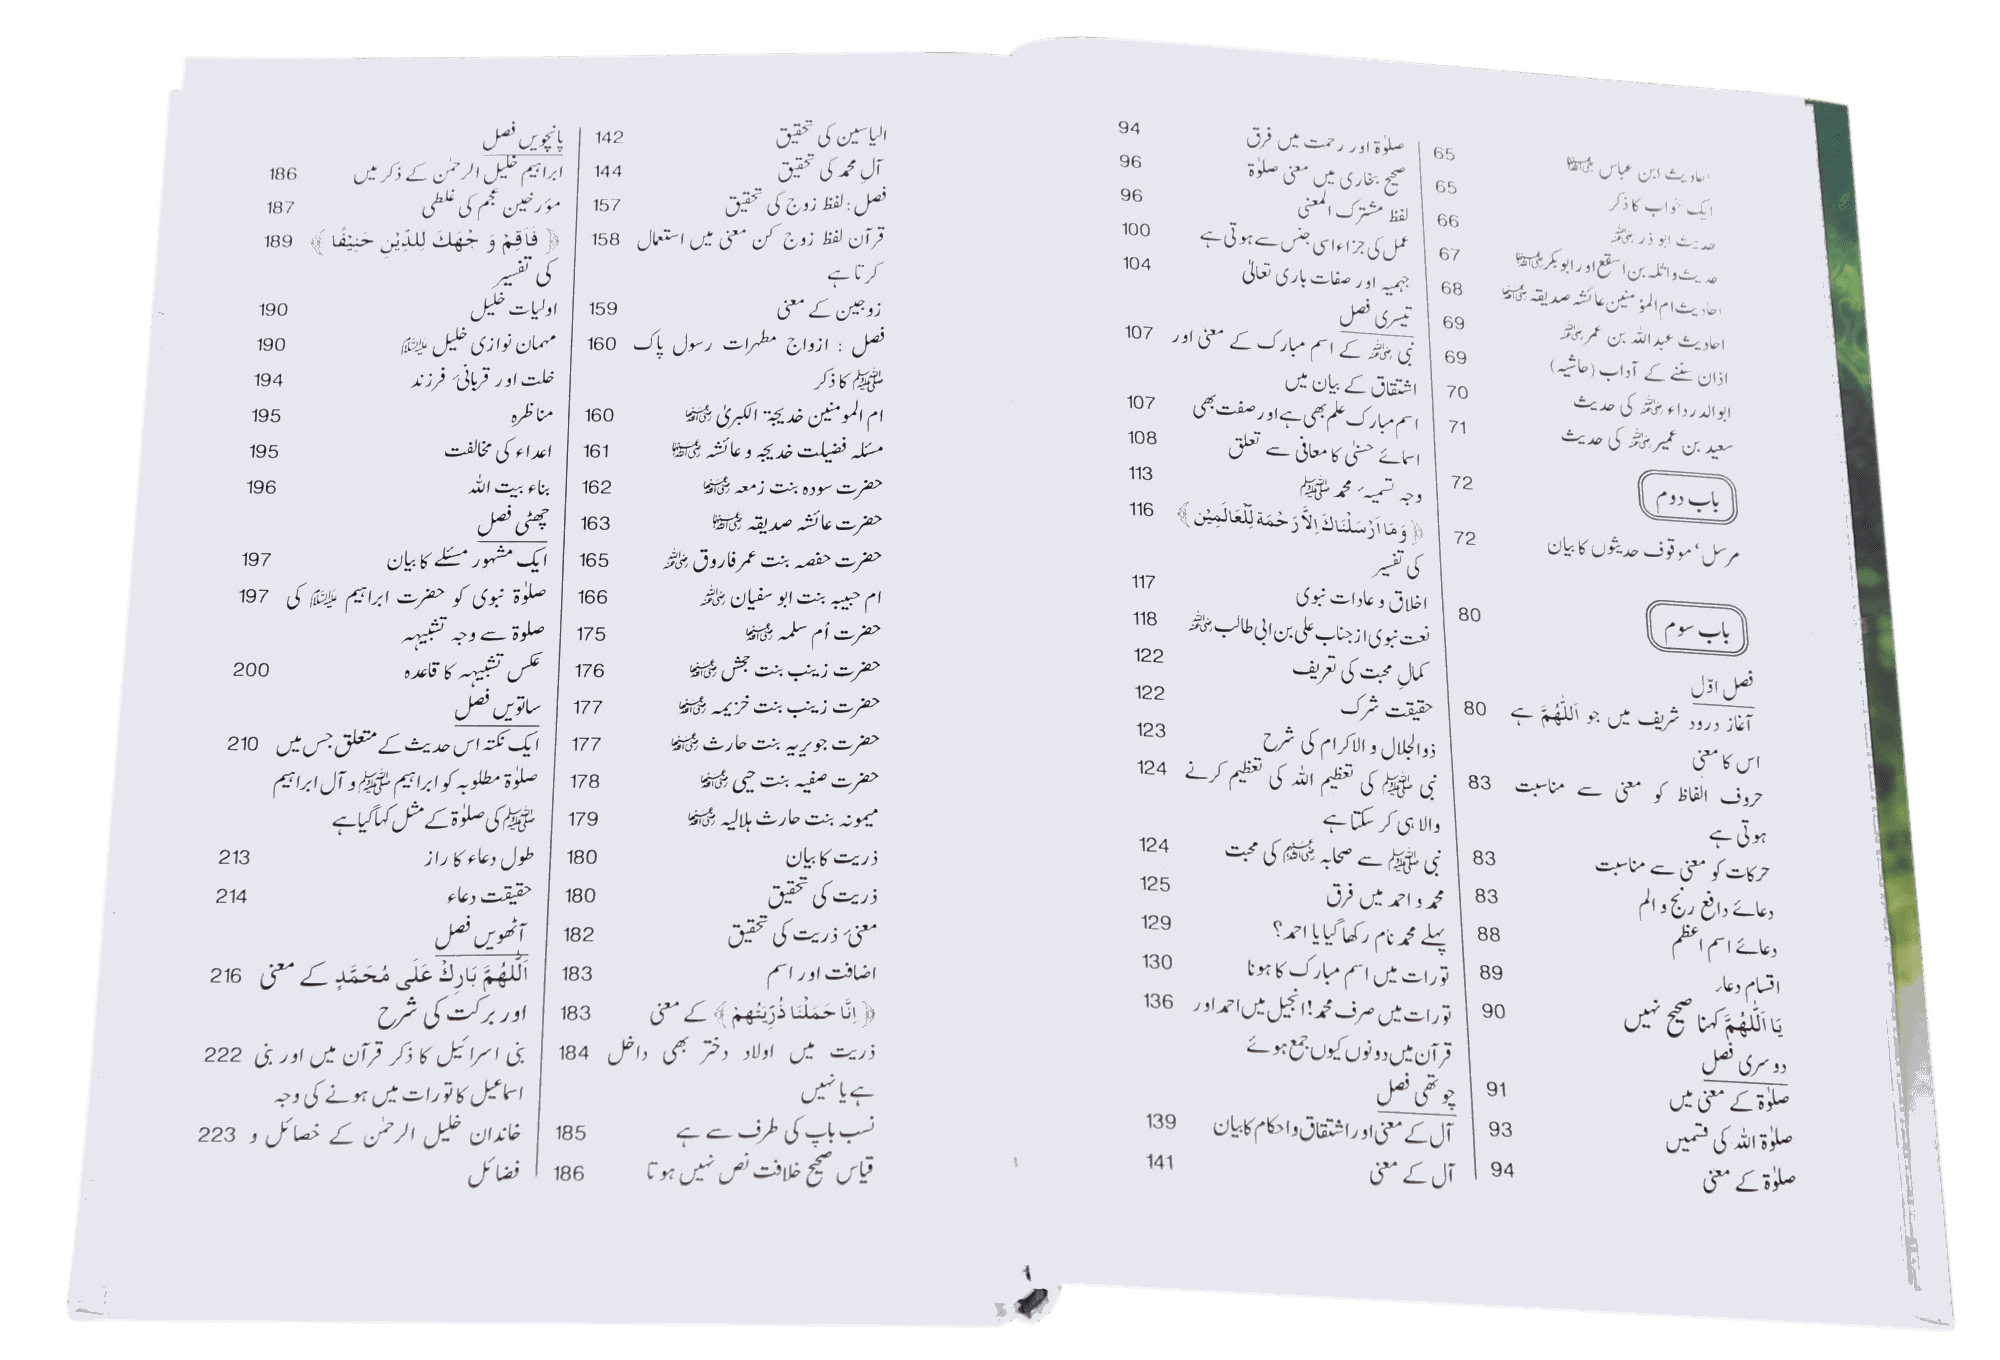 احادیث ابن عباس ﷛ 65
ایک خواب کا ذکر 65
حدیث ابو ذر ﷛ 66
حدیث واثلہ بن اسقع اور ابو بکر ﷛ 67
احادیث ام المؤمنین عائشہ صدیقہ ﷛ 68
احادیث عبداللہ بن عمر ﷛ 69
اذان سننے کے آداب (حاشیہ) 69
ابوالدرداء ﷛ کی حدیث 70
سعید بن عمیر ﷛ کی حدیث 71
باب دوم 72
مرسل، موقوف حدیثوں کا بیان 72
باب سوم 80
فصل اوّل
آغاز درود شریف میں جو اَللّٰھُمَّ ہے 80
اس کا معنی
حروف الفاظ کو معنی سے مناسبت 83
ہوتی ہے
حرکات کو معنی سے مناسبت 83
دعائے دافع رنج و الم 83
دعائے اسم اعظم 88
اقسام دعاء 89
یَا اَللّٰھُمَّ کہنا صحیح نہیں 90
دوسری فصل
صلوٰۃ کے معنی میں 91
صلوٰۃ اللہ کی قسمیں 93
صلوٰۃ کے معنی 94
صلوٰۃ اور رحمت میں فرق 94
صحیح بخاری میں معنی صلوٰۃ 96
لفظ مشترک المعنی 96
عمل کی جزاء اسی جنس سے ہوتی ہے 100
جہمیہ اور صفات باری تعالیٰ 104
تیسری فصل
نبی ﷺ کے اسم مبارک کے معنی اور 107
اشتقاق کے بیان میں
اسم مبارک علم بھی ہے اور صفت بھی 107
اسمائے حسنیٰ کا معافی سے تعلق 108
وجہ تسمیہ محمد ﷺ 113
﴿وَمَا اَرْسَلْنَاكَ اِلَّا رَحْمَةً لِّلْعَالَمِيْن﴾ 116
کی تفسیر
اخلاق و عادات نبوی 117
نعت نبوی از جناب علی بن ابی طالب ﷛ 118
کمالِ محبت کی تعریف 122
حقیقت شرک 122
ذوالجلال والاکرام کی شرح 123
نبی ﷺ کی تعظیم اللہ کی تعظیم کرنے 124
والا ہی کر سکتا ہے
نبی ﷺ سے صحابہ ﷢ کی محبت 124
محمد و احمد میں فرق 125
پہلے محمد نام رکھا گیا یا احمد؟ 129
تورات میں اسم مبارک کا ہونا 130
تورات میں صرف محمد! انجیل میں احمد اور 136
قرآن میں دونوں کیوں جمع ہوئے
چوتھی فصل
آل کے معنی اور اشتقاق و احکام کا بیان 139
آل کے معنی 141
الیاسین کی تحقیق 142
آلِ محمد کی تحقیق 144
فصل: لفظ زوج کی تحقیق 157
قرآن لفظ زوج کن معنی میں استعمال 158
کرتا ہے
زوجین کے معنی 159
فصل : ازواج مطہرات رسول پاک 160
ﷺ کا ذکر
ام المومنین خدیجۃ الکبریٰ ﷞ 160
مسئلہ فضیلت خدیجہ و عائشہ ﷞ 161
حضرت سودہ بنت زمعہ ﷞ 162
حضرت عائشہ صدیقہ ﷞ 163
حضرت حفصہ بنت عمر فاروق ﷛ 165
ام حبیبہ بنت ابو سفیان ﷛ 166
حضرت اُم سلمہ ﷞ 175
حضرت زینب بنت جحش ﷞ 176
حضرت زینب بنت خزیمہ ﷞ 177
حضرت جویریہ بنت حارث ﷞ 177
حضرت صفیہ بنت حیی ﷞ 178
میمونہ بنت حارث ہلالیہ ﷞ 179
ذریت کا بیان 180
ذریت کی تحقیق 180
معنیٔ ذریت کی تحقیق 182
اضافت اور اسم 183
﴿اِنَّا حَمَلْنَا ذُرِّيَّتَهِمْ﴾ کے معنی 183
ذریت میں اولاد دختر بھی داخل 184
ہے یا نہیں
نسب باپ کی طرف سے ہے 185
قیاس صحیح خلافت نص نہیں ہوتا 186
پانچویں فصل
ابراہیم خلیل الرحمٰن کے ذکر میں 186
مؤرخین عجم کی غلطی 187
﴿فَاَقِمْ وَ جْهَكَ لِلدِّيْنِ حَنِيْفًا﴾ 189
کی تفسیر
اولیات خلیل 190
مہمان نوازی خلیل ﷤ 190
خلت اور قربانیٔ فرزند 194
مناظرہ 195
اعداء کی مخالفت 195
بناء بیت اللہ 196
چھٹی فصل
ایک مشہور مسئلے کا بیان 197
صلوٰۃ نبوی کو حضرت ابراہیم ﷤ کی 197
صلوۃ سے وجہ تشبیہہ
عکس تشبیہہ کا قاعدہ 200
ساتویں فصل
ایک نکتہ اس حدیث کے متعلق جس میں 210
صلوٰۃ مطلوبہ کو ابراہیم ﷺ و آل ابراہیم
ﷺ کی صلوٰۃ کے مثل کہا گیا ہے
طول دعاء کا راز 213
حقیقت دعاء 214
آٹھویں فصل
اَللّٰهُمَّ بَارِكْ عَلَى مُحَمَّدٍ کے معنی 216
اور برکت کی شرح
بنی اسرائیل کا ذکر قرآن میں اور بنی 222
اسماعیل کا تورات میں ہونے کی وجہ
خاندان خلیل الرحمٰن کے خصائل و 223
فضائل